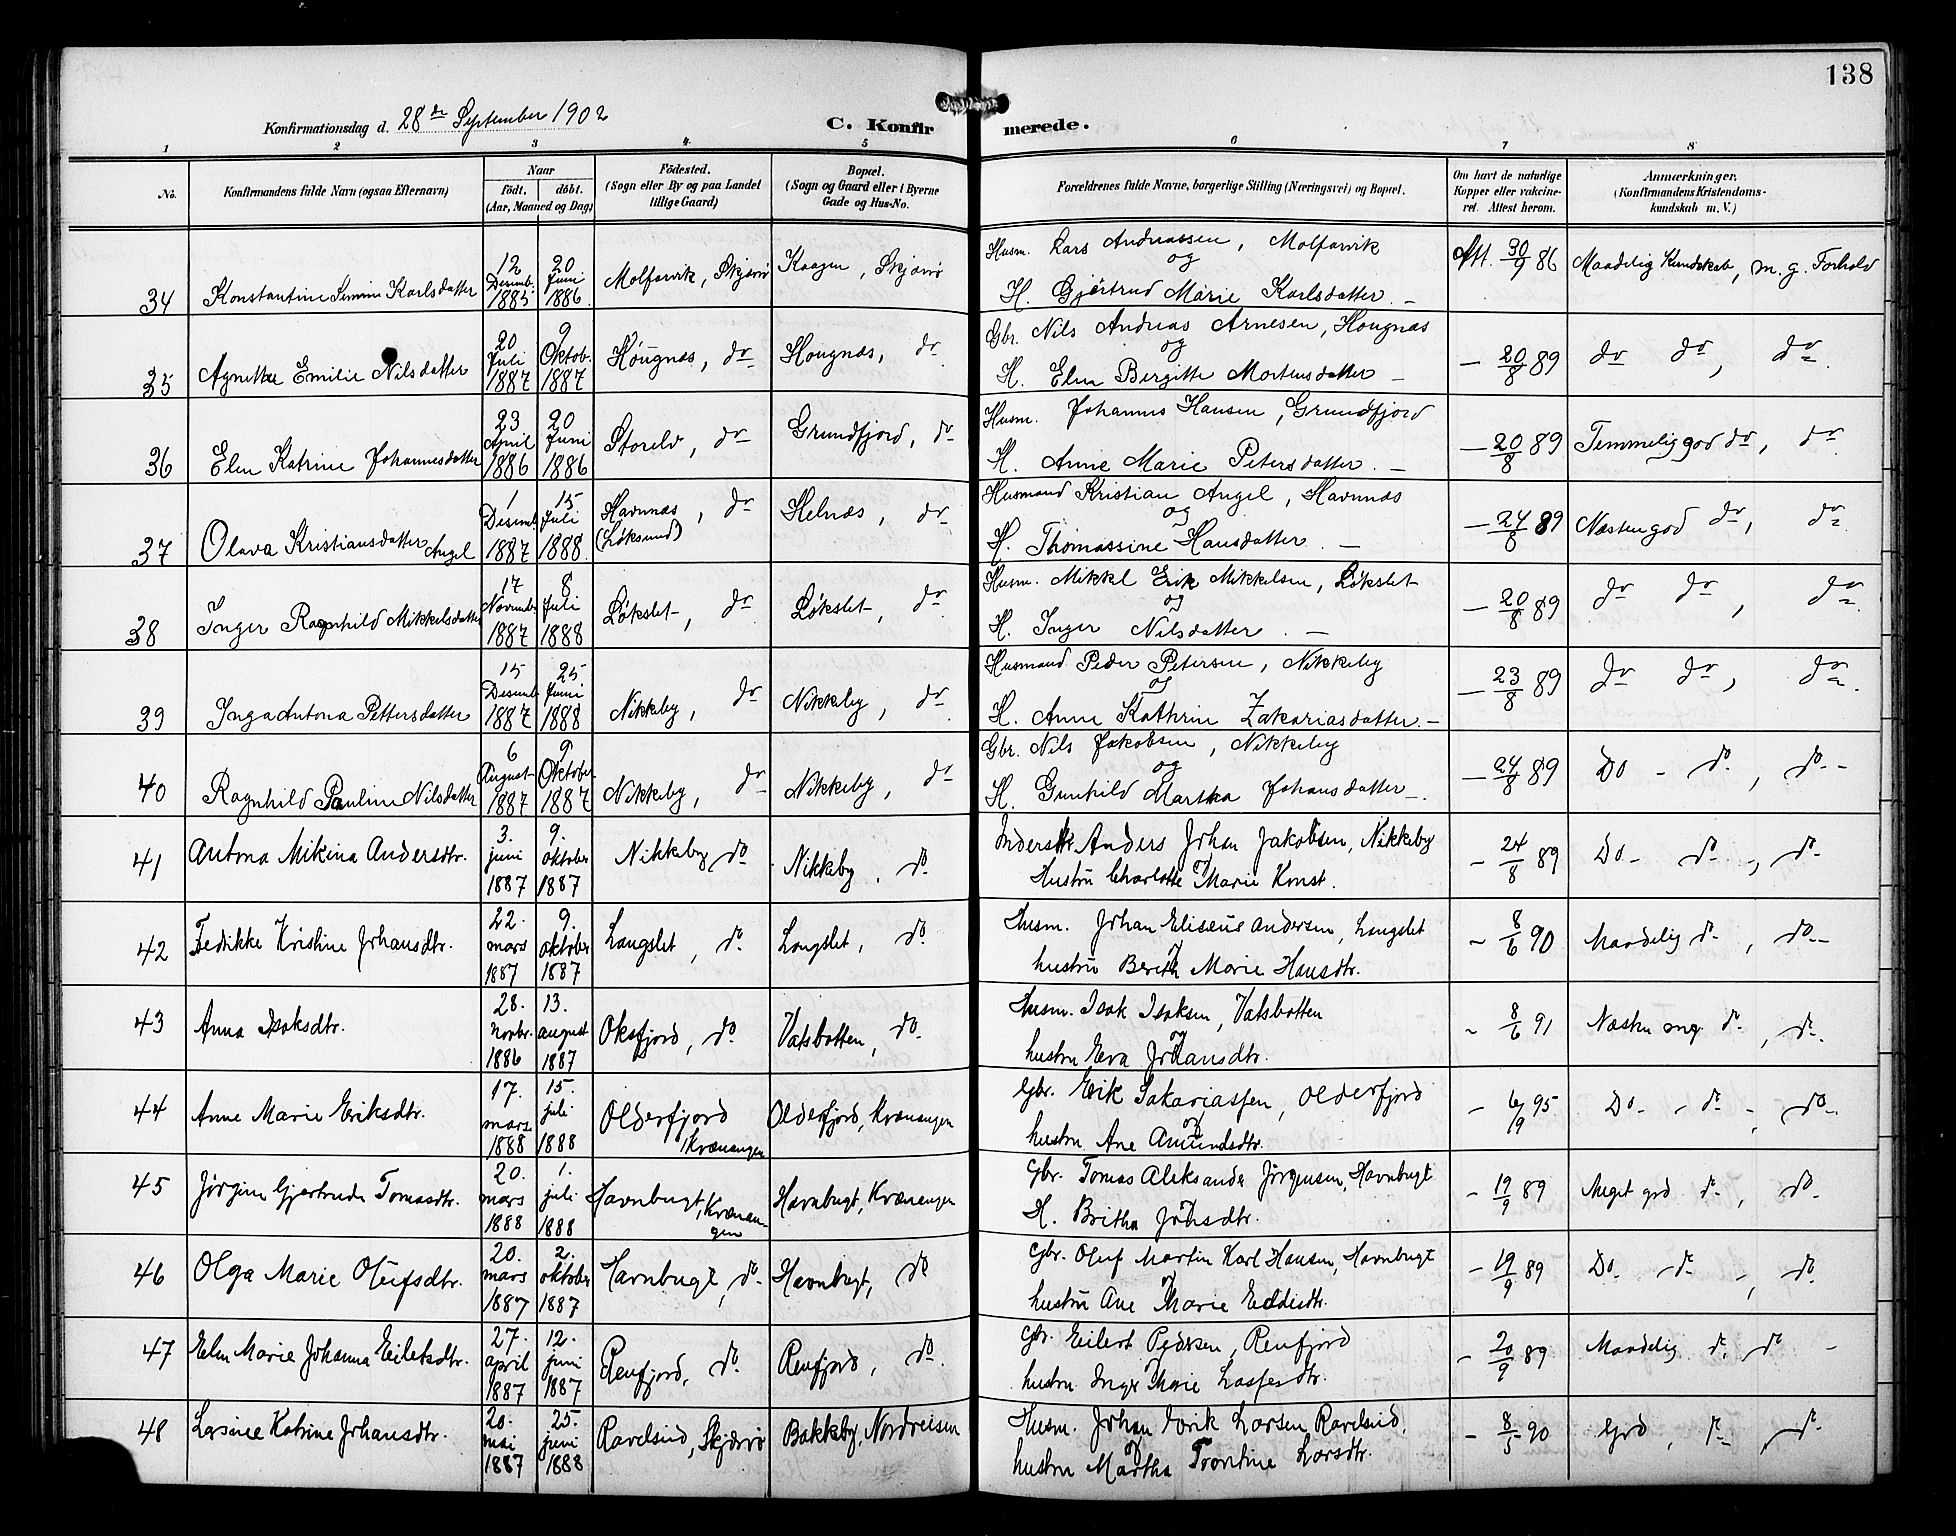 138
Konfirmationsdag d. 28de September 1902
C. Konfirmerede.
1 2 3 4 5 6 7 8
No.
Konfirmandens fulde Navn (ogsaa Efternavn)
Naar
födt. döbt.
(Aar, Maaned og Dag)
Födested.
(Sogn eller By og paa Landet
tillige Gaard)
Bopæl.
(Sogn og Gaard eller i Byerne
Gade og Hus-No.
Forældrenes fulde Navne, borgerlige Stilling (Næringsvei) og Bopæl.
Om havt de naturlige
Kopper eller vakcine-
ret. Attest herom.
Anmærkninger.
(Konfirmandens Kristendoms-
kundskab m. V.)
34
Konstantine Karlsdatter
12 Desemb. 1885
20 Juni 1886
Molfarvik, Skjærvø
Kaagen, Skjærvø
Husm. Lars Andreassen, Molfarvik
og
H. Gjertrud Marie Karlsdatter. –
Att. 30/9 86
Maadelig Kundskab, m. g. Forhold
35
Agnethe Emilie Nilsdatter
20 Juli 1887
9 Oktob. 1887
Hougnæs, do
Hougnæs, do
Gbr. Nils Andreas Arnesen, Hougnæs
og
H. Elen Bergitte Mortensdatter –
– 20/8 89
do do, do
36
Elen Katrine Johannesdatter
23 April 1886
20 Juni 1886
Storelv, do
Grundfjord, do
Husm. Johannes Hansen, Grundfjord
H. Anne Marie Petersdatter. –
– 20/8 89
Temmelig god do, do
37
Olava Kristiansdatter Angel
1 Desemb. 1887
15 Juli 1888
Havnnæs, do
(Løksund)
Helnæs, do
Husmand Kristian Angel, Havnnæs
og
H. Thomassine Hansdatter. –
– 24/8 89
Næsten god do, do
38
Inger Ragnhild Mikkelsdatter
17 Novemb. 1887
8 Juli 1888
Løkslet, do
Løkslet, do
Husm. Mikkel Erik Mikkelsen, Løkslet
og
H. Inger Nilsdatter. –
– 20/8 89
do do, do
39
Inga Antona Pettersdatter
15 Desemb. 1887
25 Juni 1888
Nikkeby, do
Nikkeby, do
Husmand Peder Petersen, Nikkeby
og
H. Anne Kathrin Zakariasdatter. –
– 23/8 89
do do, do
40
Ragnhild Pauline Nilsdatter
6 August 1887
9 Oktober 1887
Nikkeby, do
Nikkeby, do
Gbr. Nils Jakobsen, Nikkeby
og
H. Gunhild Martha Johansdatter –.
– 24/8 89
Do – do, do –
41
Antona Mikina Andersdtr.
3. juni 1887
9. oktober 1887
Nikkeby do
Nikkeby, do
Anders Johan Jakobsen, Nikkeby
Hustru Charlotte Marie Konst.
– 24/8 89
Do – do –, do
42
Fedrikke Kristine Johansdtr.
22. mars 1887
9. oktober 1887
Langslet, do
Langslet, do
Husm. Johan Eliseus Andersen, Langslet
hustru Berith Marie Hansdtr.
– 8/6 90
Maadelig do, do –
43
Anna Isaksdtr.
28. novbr. 1886
13. august 1887
Oksfjord, do
Vatsbotten, do
Husm. Isak Isaksen, Vatsbotten
og
hustru Eva Johansdtr.
– 8/6 91
Næsten mg. do, do
44
Anne Marie Eriksdtr.
17. mars 1888
15. juli 1888
Olderfjord
Kvænangen
Olderfjord, Kvænangen
Gbr. Erik Sakariassen, Olderfjord
og
hustru Ane Amundsdtr.
– 6/9 95
Do – do –, do
45
Jørgine Gjertrude Tomasdtr.
20. mars 1888
1. juli 1888
Havnbugt, Kvænangen
Havnbugt, Kvænangen
Gbr. Tomas Aleksander Jørgensen, Havnbugt
H. Britha Johsdtr.
– 19/9 89
Meget god do, do
46
Olga Marie Olufsdtr.
20. mars 1887
2. oktober 1887
Havnbugt, do
Havnbugt, do
Gbr. Oluf Martin Karl Hansen, Havnbugt
hustru Ane Marie Eddisdtr.
– 19/9 89
Do – do –, do
47
Elen Marie Johanna Eilertsdtr.
27. april 1887
12. juni 1887
Renfjord, do
Renfjord, do
Gbr. Eilert Pedersen, Renfjord
hustru Inger Marie Lassesdtr.
– 20/9 89
Maadelig do, do –
48
Larsine Katrine Johansdtr.
20. mai 1887
25. juni 1888
Ravelseid, Skjærvø
Bakkeby, Nordreisen
Husm. Johan Erik Larsen, Ravelseid,
og
hustru Martha Trontine Larsdtr.
– 8/5 90
God, do, do